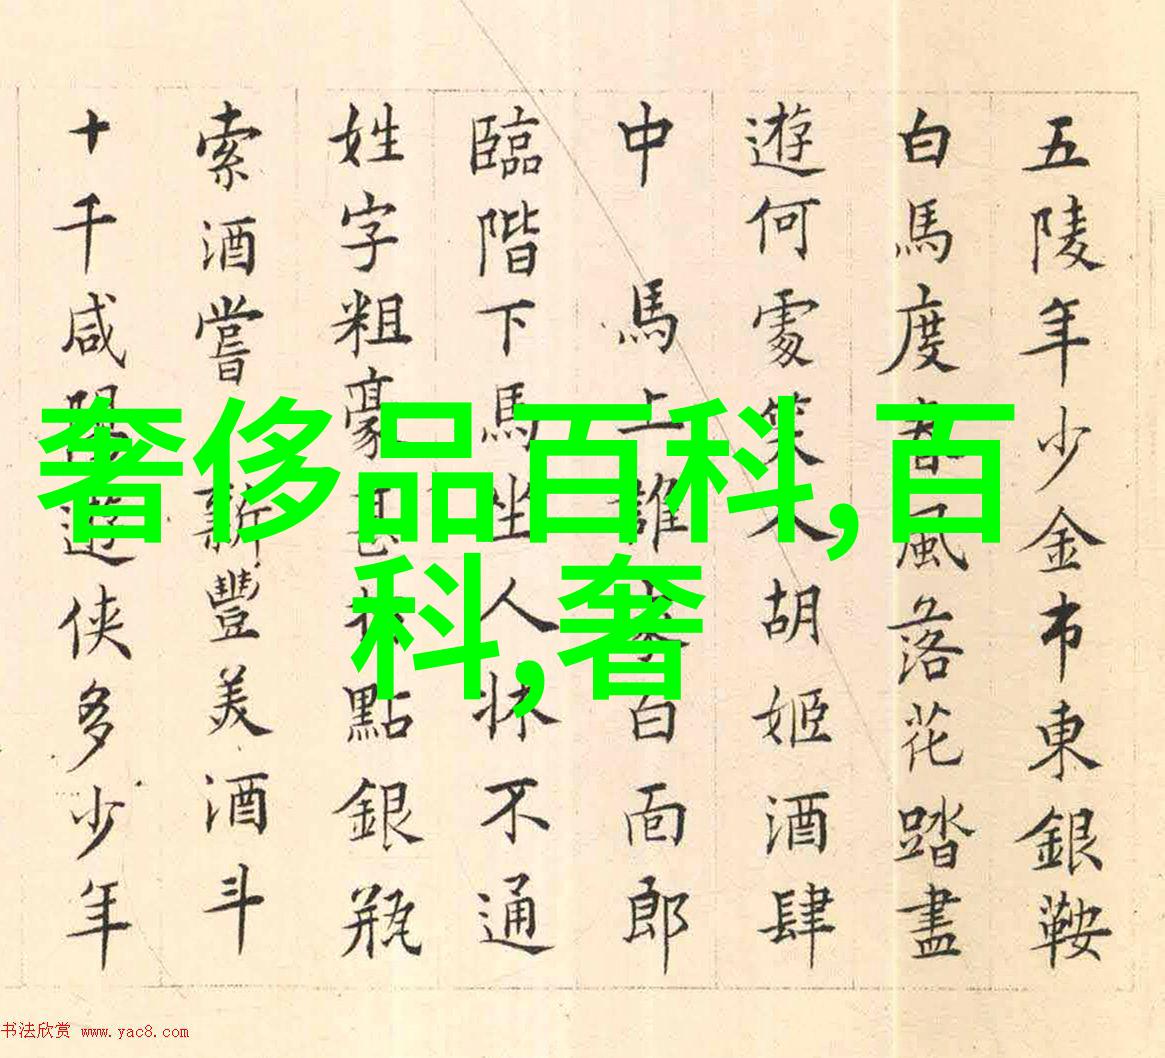 五陵年少金市東銀鞍
白馬度春風落花踏盡
遊何處笑入胡姬酒肆
中 馬上誰家白面郎
臨階下馬坐人牀不通
姓字粗豪甚指點銀瓶
索酒嘗新豐美酒斗
十千咸陽遊俠多少年
奢侈品百科,百
科,奢
书法欣赏 www.yac8.com